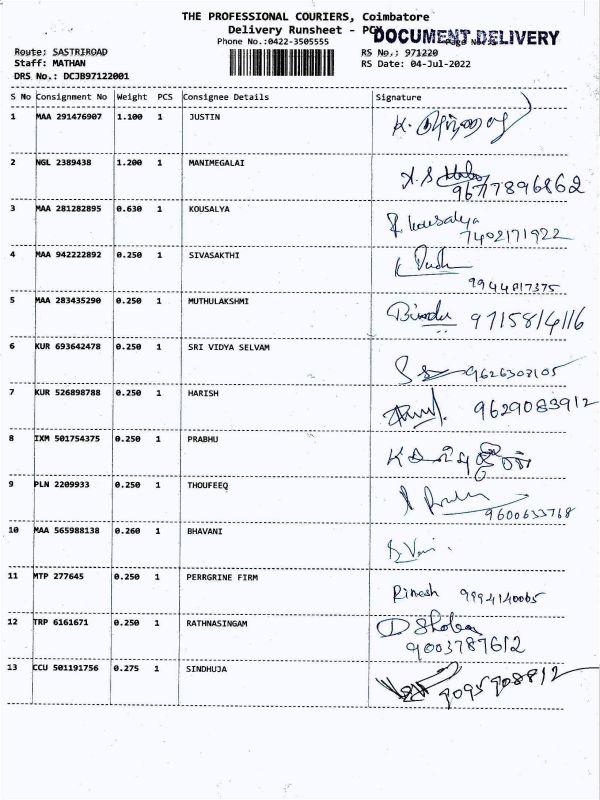 THE PROFESSIONAL COURIERS, Coimbatore
Delivery Runsheet -
DOCUMENT DELIVERY
Phone No.:0422-3505555
Route: SASTRIROAD
RS No.: 971220
Staff: MATHAN
RS Date: 04-Jul-2022
DRS No.: DCJB97122001
S No Consignment No Weight PCS Consignee Details Signature
1 MAA 291476907 1.100 1 JUSTIN
2 NGL 2389438 1.200 1 MANIMEGALAI
9677896862
3 MAA 281282895 0.630 1 KOUSALYA kousalya
7402171922
4 MAA 942222892 0.250 1 SIVASAKTHI
9944017375
5 MAA 283435290 0.250 1 MUTHULAKSHMI Bindu
6 KUR 693642478 0.250 1 SRI VIDYA SELVAM
7 KUR 526898788 0.250 1 HARISH 9629083912
8 IXM 501754375 0.250 1 PRABHU
9 PLN 2209933 0.250 1 THOUFEEQ
9600633768
10 MAA 565988138 0.260 1 BHAVANI
11 MTP 277645 0.250 1 PERRGRINE FIRM Rinesh 9994140065
12 TRP 6161671 0.250 1 RATHNASINGAM D Shoba
9003787612
13 CCU 501191756 0.275 1 SINDHUJA 9095908812